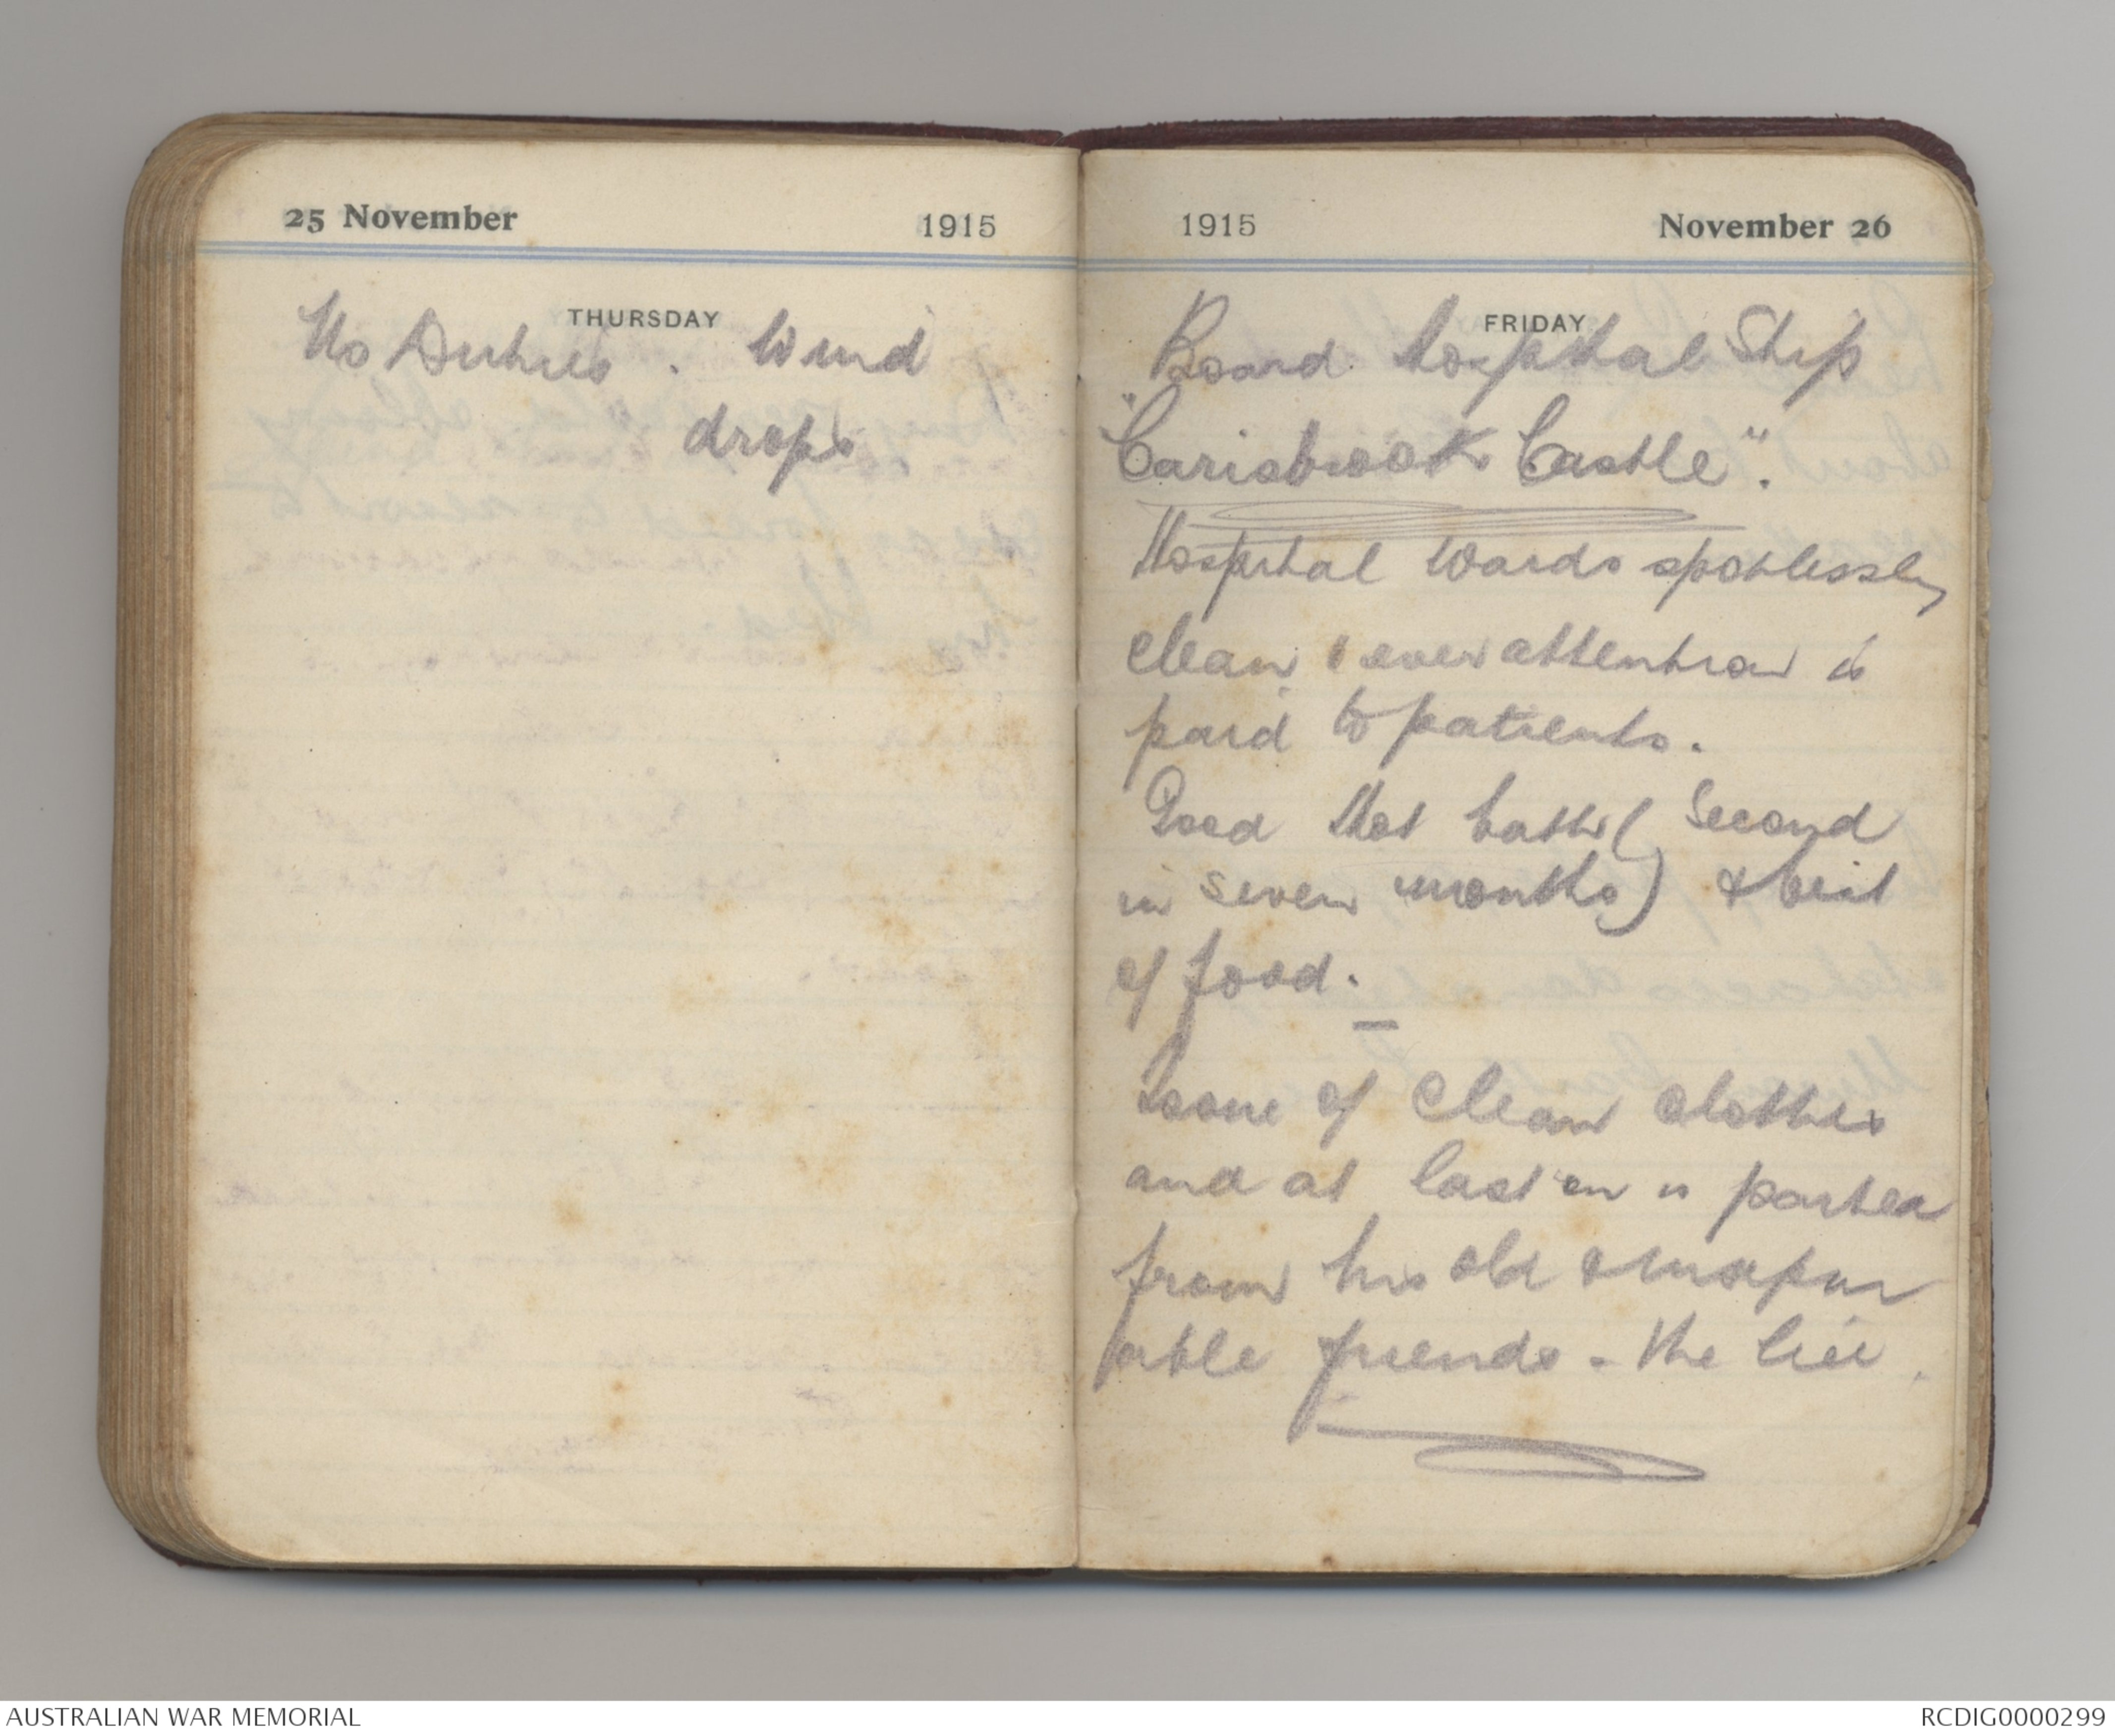 25 November 1915
THURSDAY
No Duties. Wind
drops
1915 November 26
FRIDAY
Board Hospital Ship
"Carisbrook Castle".
Hospital Wards spotlessly
clean & ever attention is
paid to patients.
Good Hot bath (Second
in seven months) &
of food.
Issue of clean clothes
and at last is parted
from his old &
able friends - the lice.
AUSTRALIAN WAR MEMORIAL
RCDIG0000299